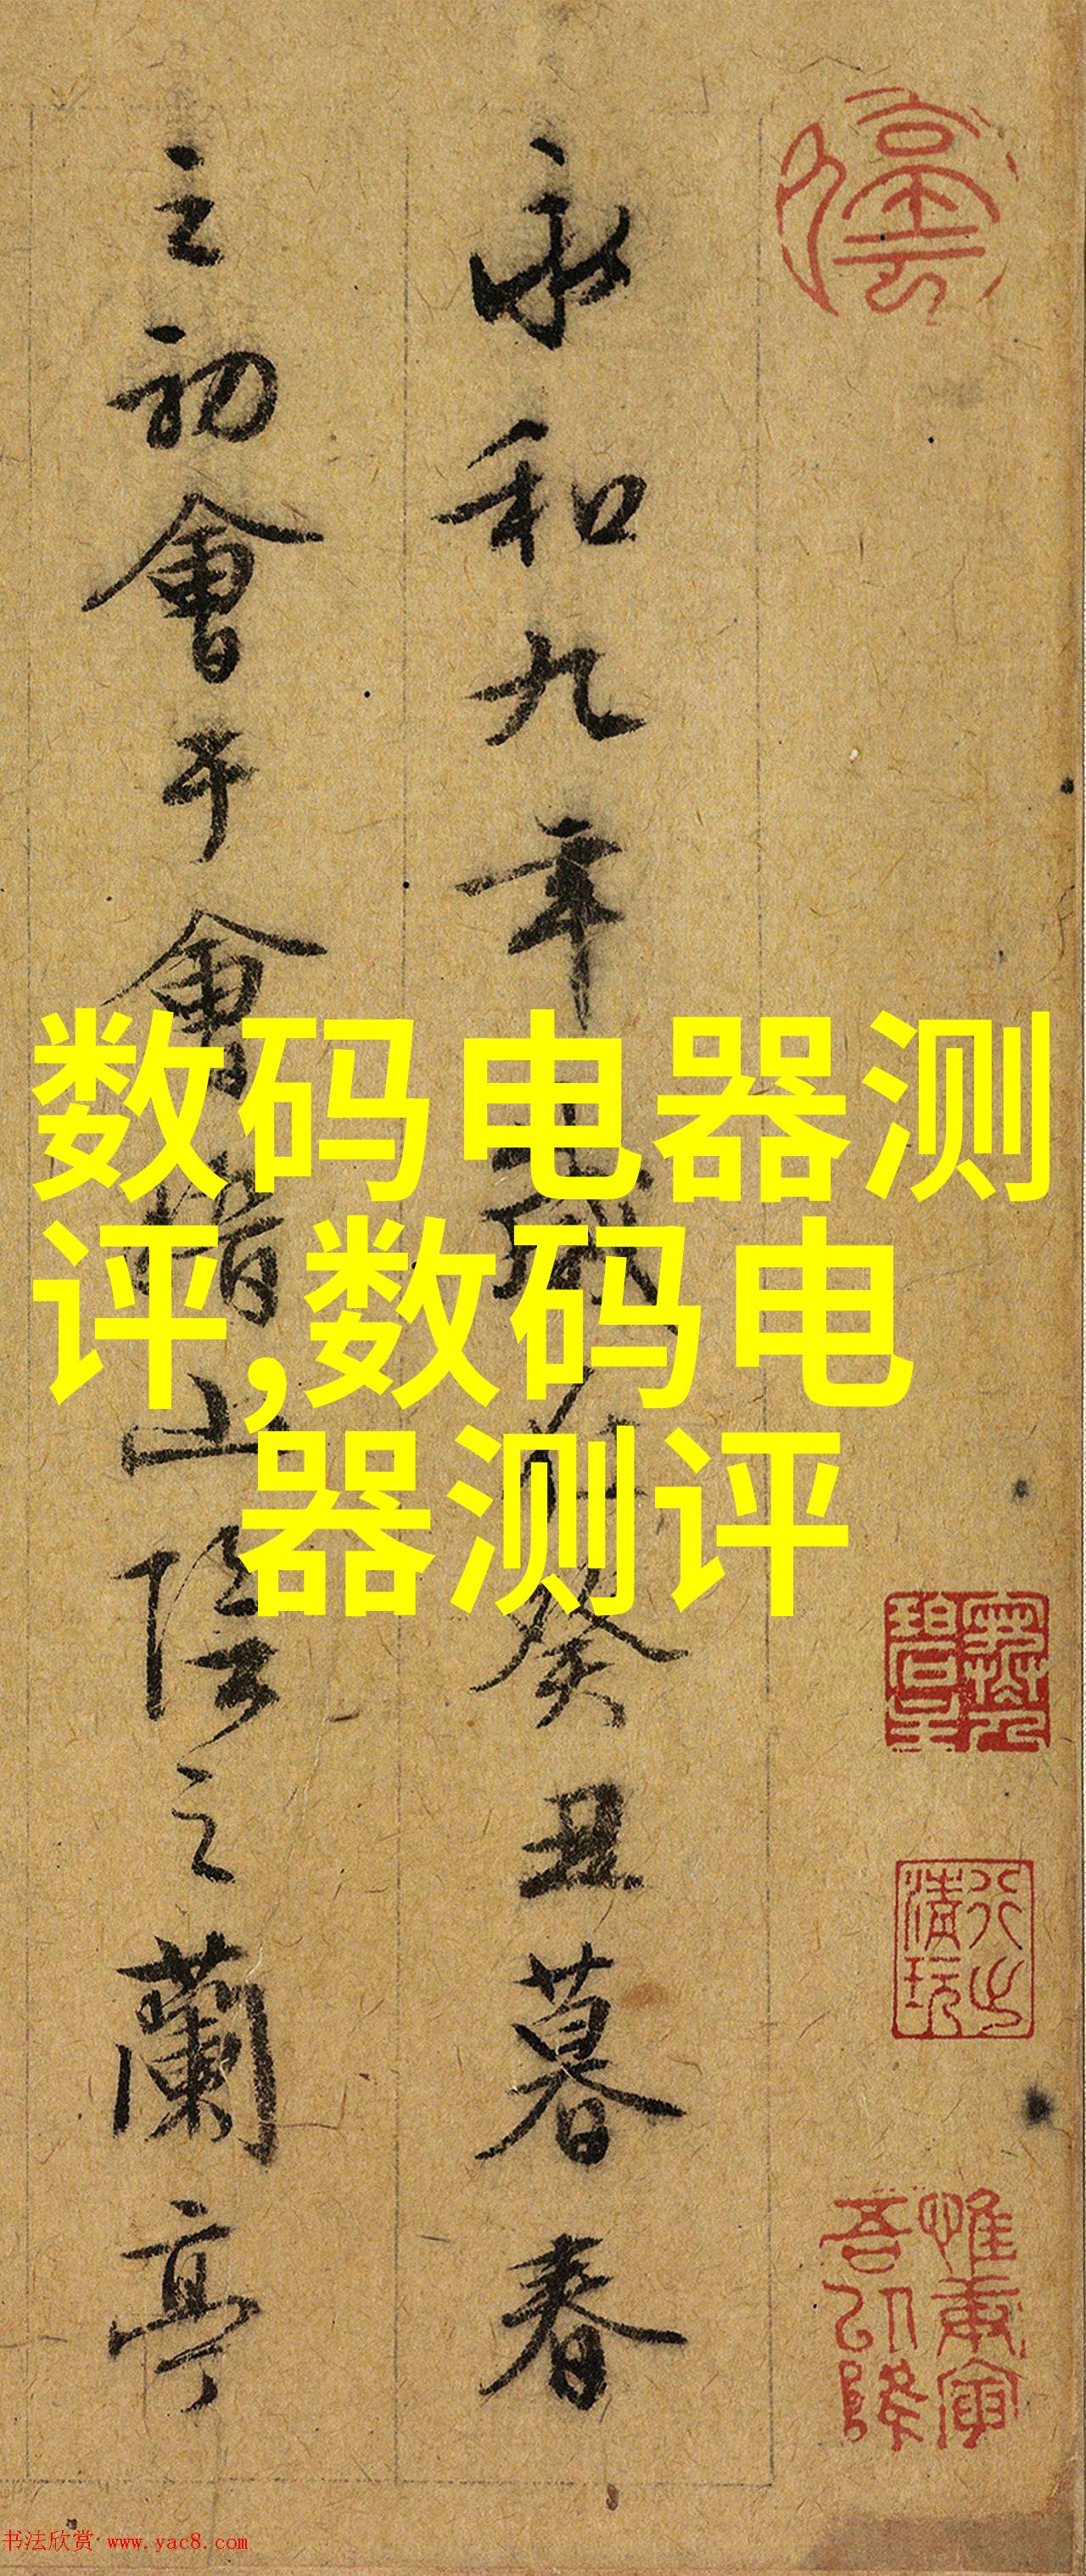 永和九年歲在癸丑暮春
之初會于會稽山陰之蘭亭
數码电器测
评,数码电
器测评
惟庚寅吾以降
书法欣赏 www.yac8.com